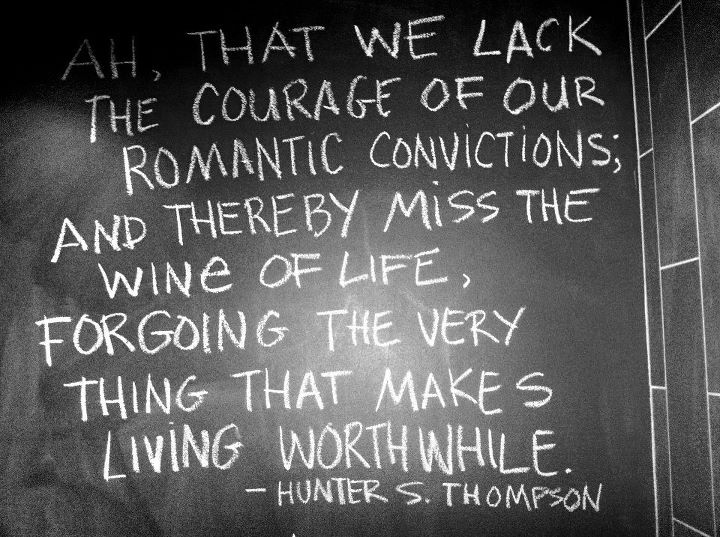 AH, THAT WE LACK
THE COURAGE OF OUR
ROMANTIC CONVICTIONS;
AND THEREBY MISS THE
WINe OF LIFE,
FORGOING THE VERY
THING THAT MAKES
LIVING WORTHWHILE.
– HUNTER S. THOMPSON